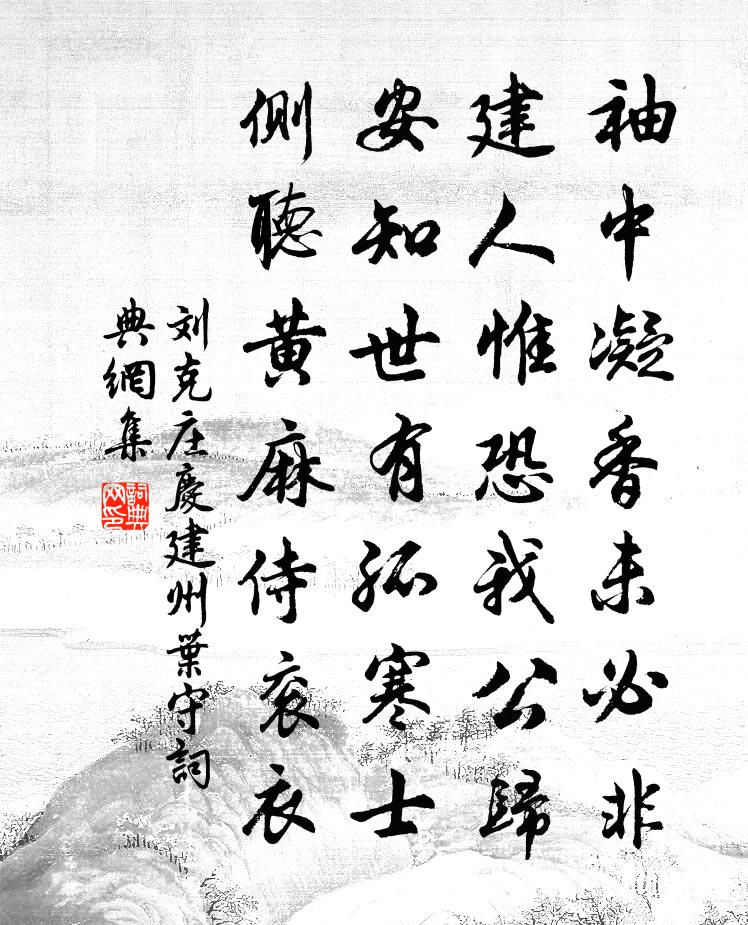 袖中凝香未必非
建人惟恐我公歸
安知世有孤寒士
側聽黃麻侍衮衣
刘克庄慶建州葉守詞
典網集
詞典
网印